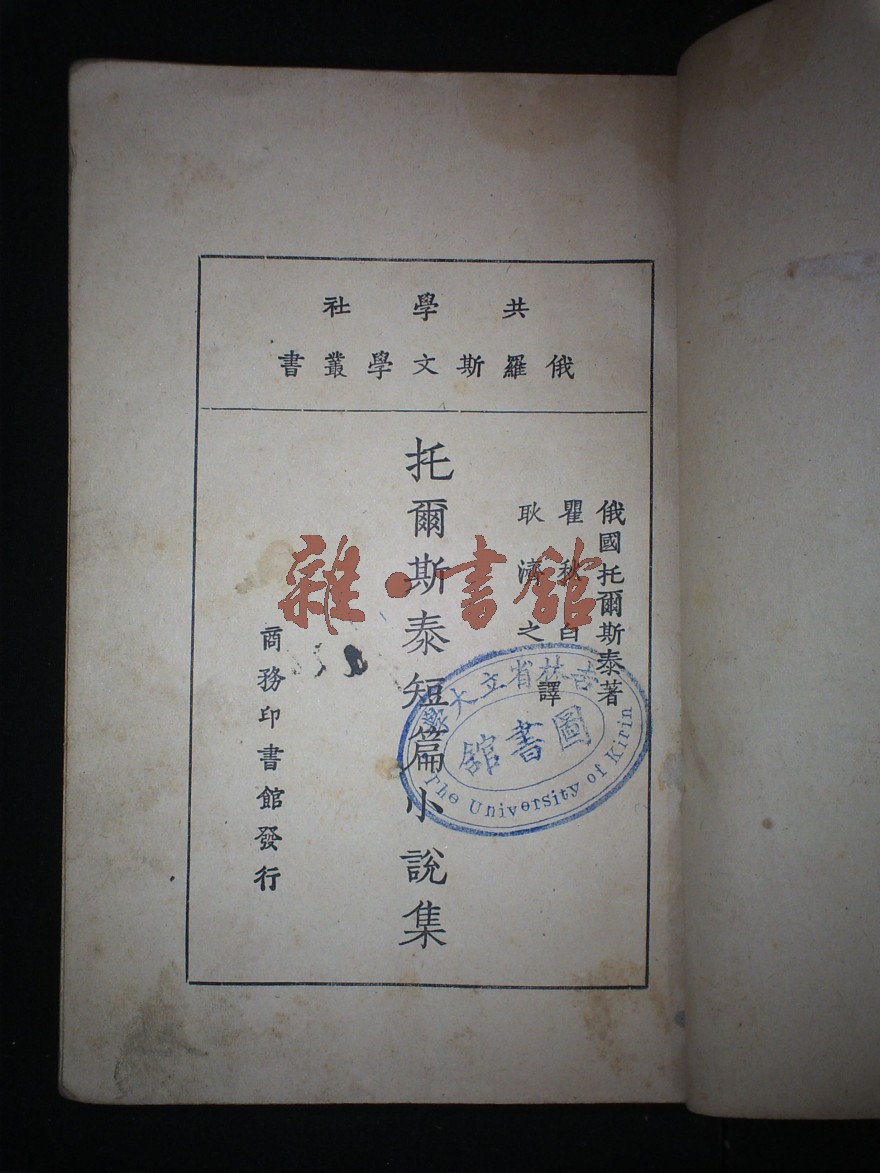 共學社
俄羅斯文學叢書
俄國托爾斯泰著
瞿秋白
耿濟之
譯
托爾斯泰短篇小說集
商務印書館發行
吉林省立大學
圖書館
The University of Kirin
雜·書館